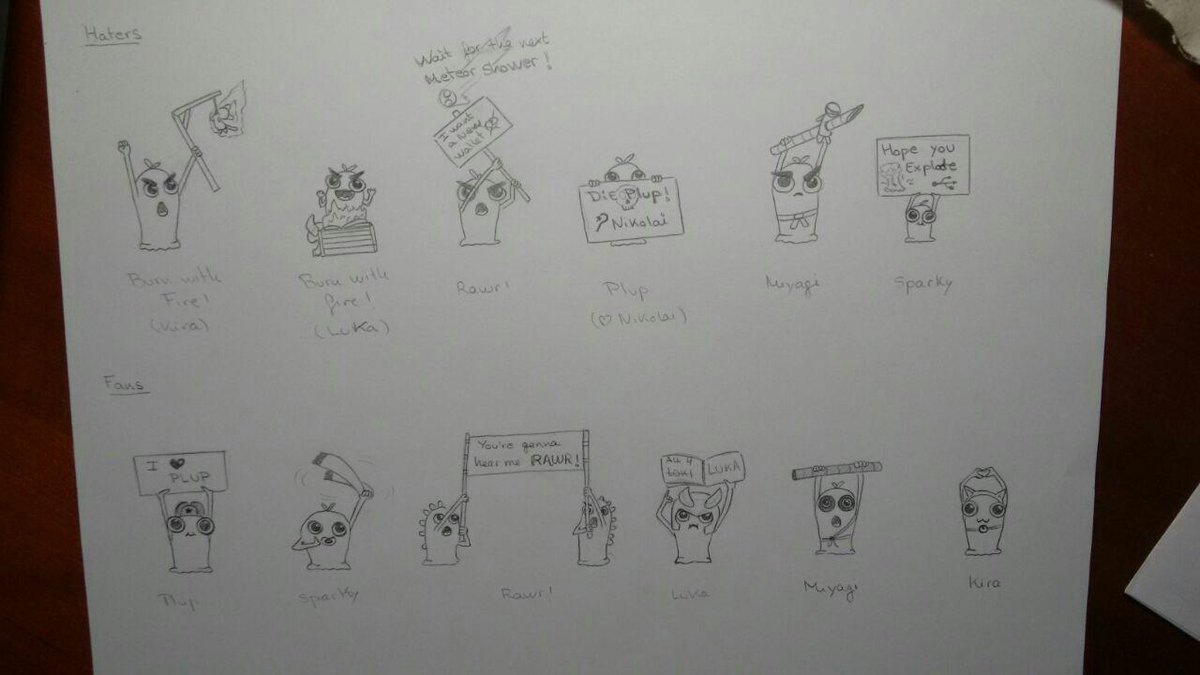 Haters
Wait for the next
Meteor Shower!
I want
a New
Wallet
Die Plup!
Nikolai
Hope you
Explode
Burn with
Fire!
(Kira)
Burn with
fire!
(LuKa)
Rawr!
Plup
(♡ Nikolai)
Miyagi
Sparky
Fans
I ♥
PLUP
You're gonna
hear me RAWR!
All 4
LUKA
Plup
Sparky
Rawr!
Luka
Miyagi
Kira